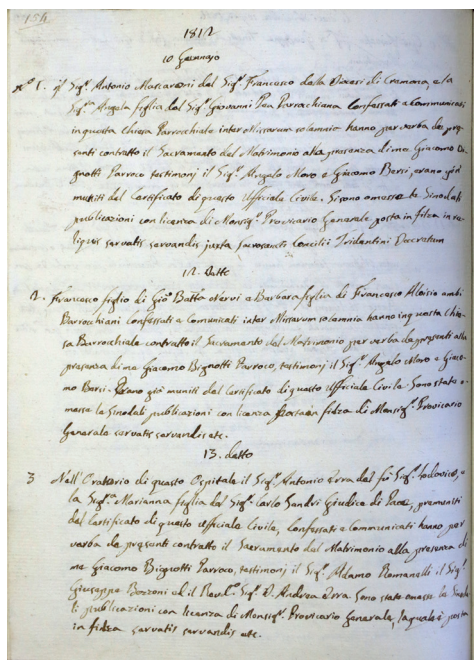 154
1812
10 Gennajo
N.º 1. Il Sig.r Antonio Mascaroni del Sig.r Francesco della Diocesi di Cremona, e la
Sig.ra Angela figlia del Sig.r Giovanni Pea Parrochiana Confessati e Communicati
in questa Chiesa Parrochiale inter Missarum solemnia hanno per verba de pre-
senti contratto il Sacramento del Matrimonio alla presenza di me Giacomo Bi-
gnotti Parroco testimonj il Sig.r Angelo Moro e Giacomo Bersi, erano già
muniti del Certificato di questo Ufficiale Civile. Si sono omesse le Sinodali
publicazioni con licenza di Monsig.r Provicario Generale posta in filza in re-
liquis servatis servandis juxta Sacrosancti Concilii Tridentini Decretum
12. Detto
2. Francesco figlio di Gio: Batta Nervi e Barbara figlia di Francesco Aloisio ambi
Parrochiani Confessati e Comunicati inter Missarum solemnia hanno in questa Chie-
sa Parrochiale contratto il Sacramento del Matrimonio per verba de presenti alla
presenza di me Giacomo Bignotti Parroco, testimonj il Sig.r Angelo Moro e Giaco-
mo Bersi. Erano già muniti del Certificato di questo Ufficiale Civile. Sono state o-
messe le Sinodali publicazioni con licenza posta in filza di Monsig.r Provicario
Generale servatis servandis etc.
13. detto
3 Nell'Oratorio di questo Ospitale il Sig.r Antonio Erra del fu Sig.r Lodovico, e
la Sig.ra Marianna figlia del Sig.r Carlo Sandri Giudice di Pace, premuniti
del Certificato di questo Ufficiale Civile, Confessati e Communicati hanno per
verba de presenti contratto il Sacramento del Matrimonio alla presenza di
me Giacomo Bignotti Parroco, testimonj il Sig.r Adamo Romanelli il Sig.r
Giuseppe Bozzoni ed il Rev.do Sig.r D. Andrea Erra. Sono state omesse le Sinoda-
li publicazioni con licenza di Monsig.r Provicario Generale, la quale è posta
in filza servatis servandis etc.